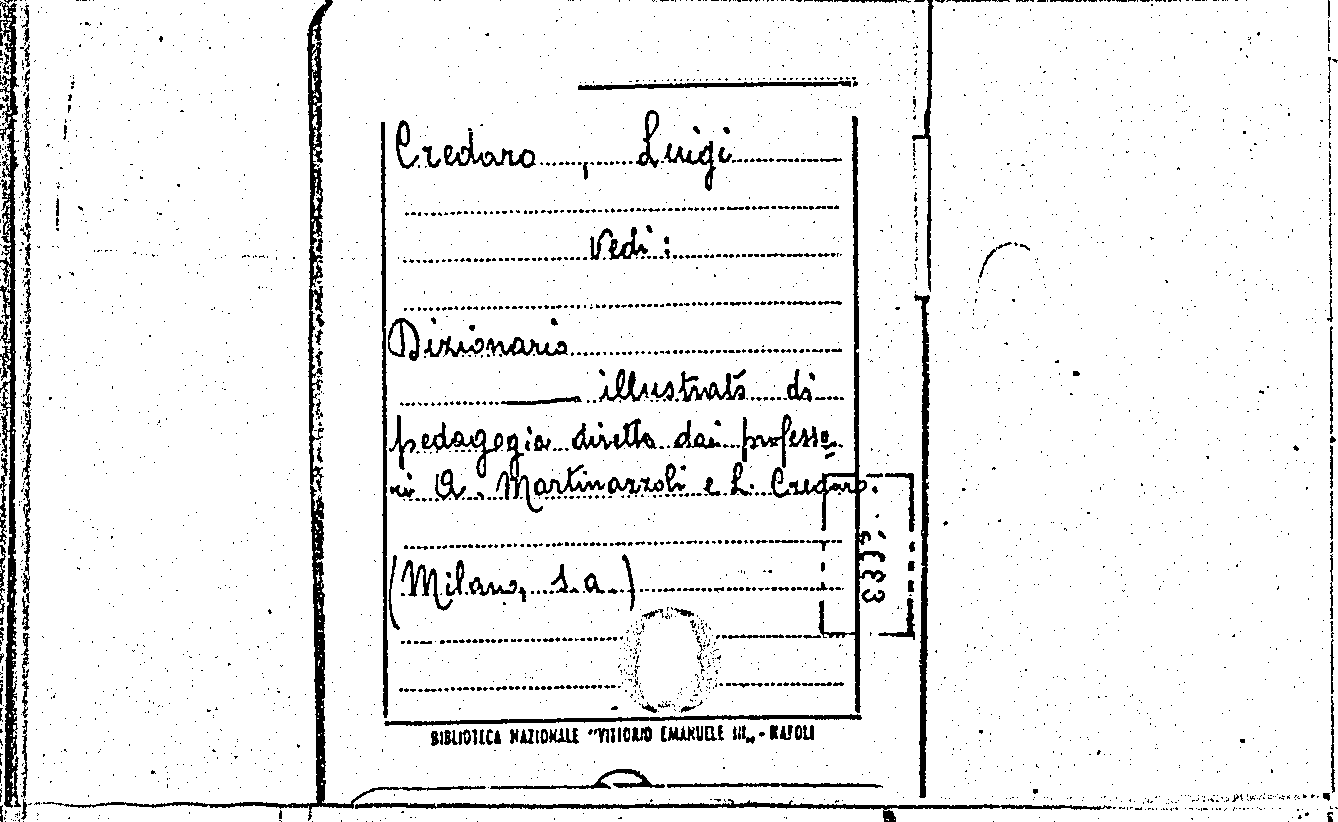 Credaro, Luigi
Vedi:
Dizionario
illustrato di
pedagogia diretto dai professo
ri A. Martinazzoli e L. Credaro.
(Milano, s.a.)
BIBLIOTECA NAZIONALE "VITTORIO EMANUELE III„ - NAPOLI